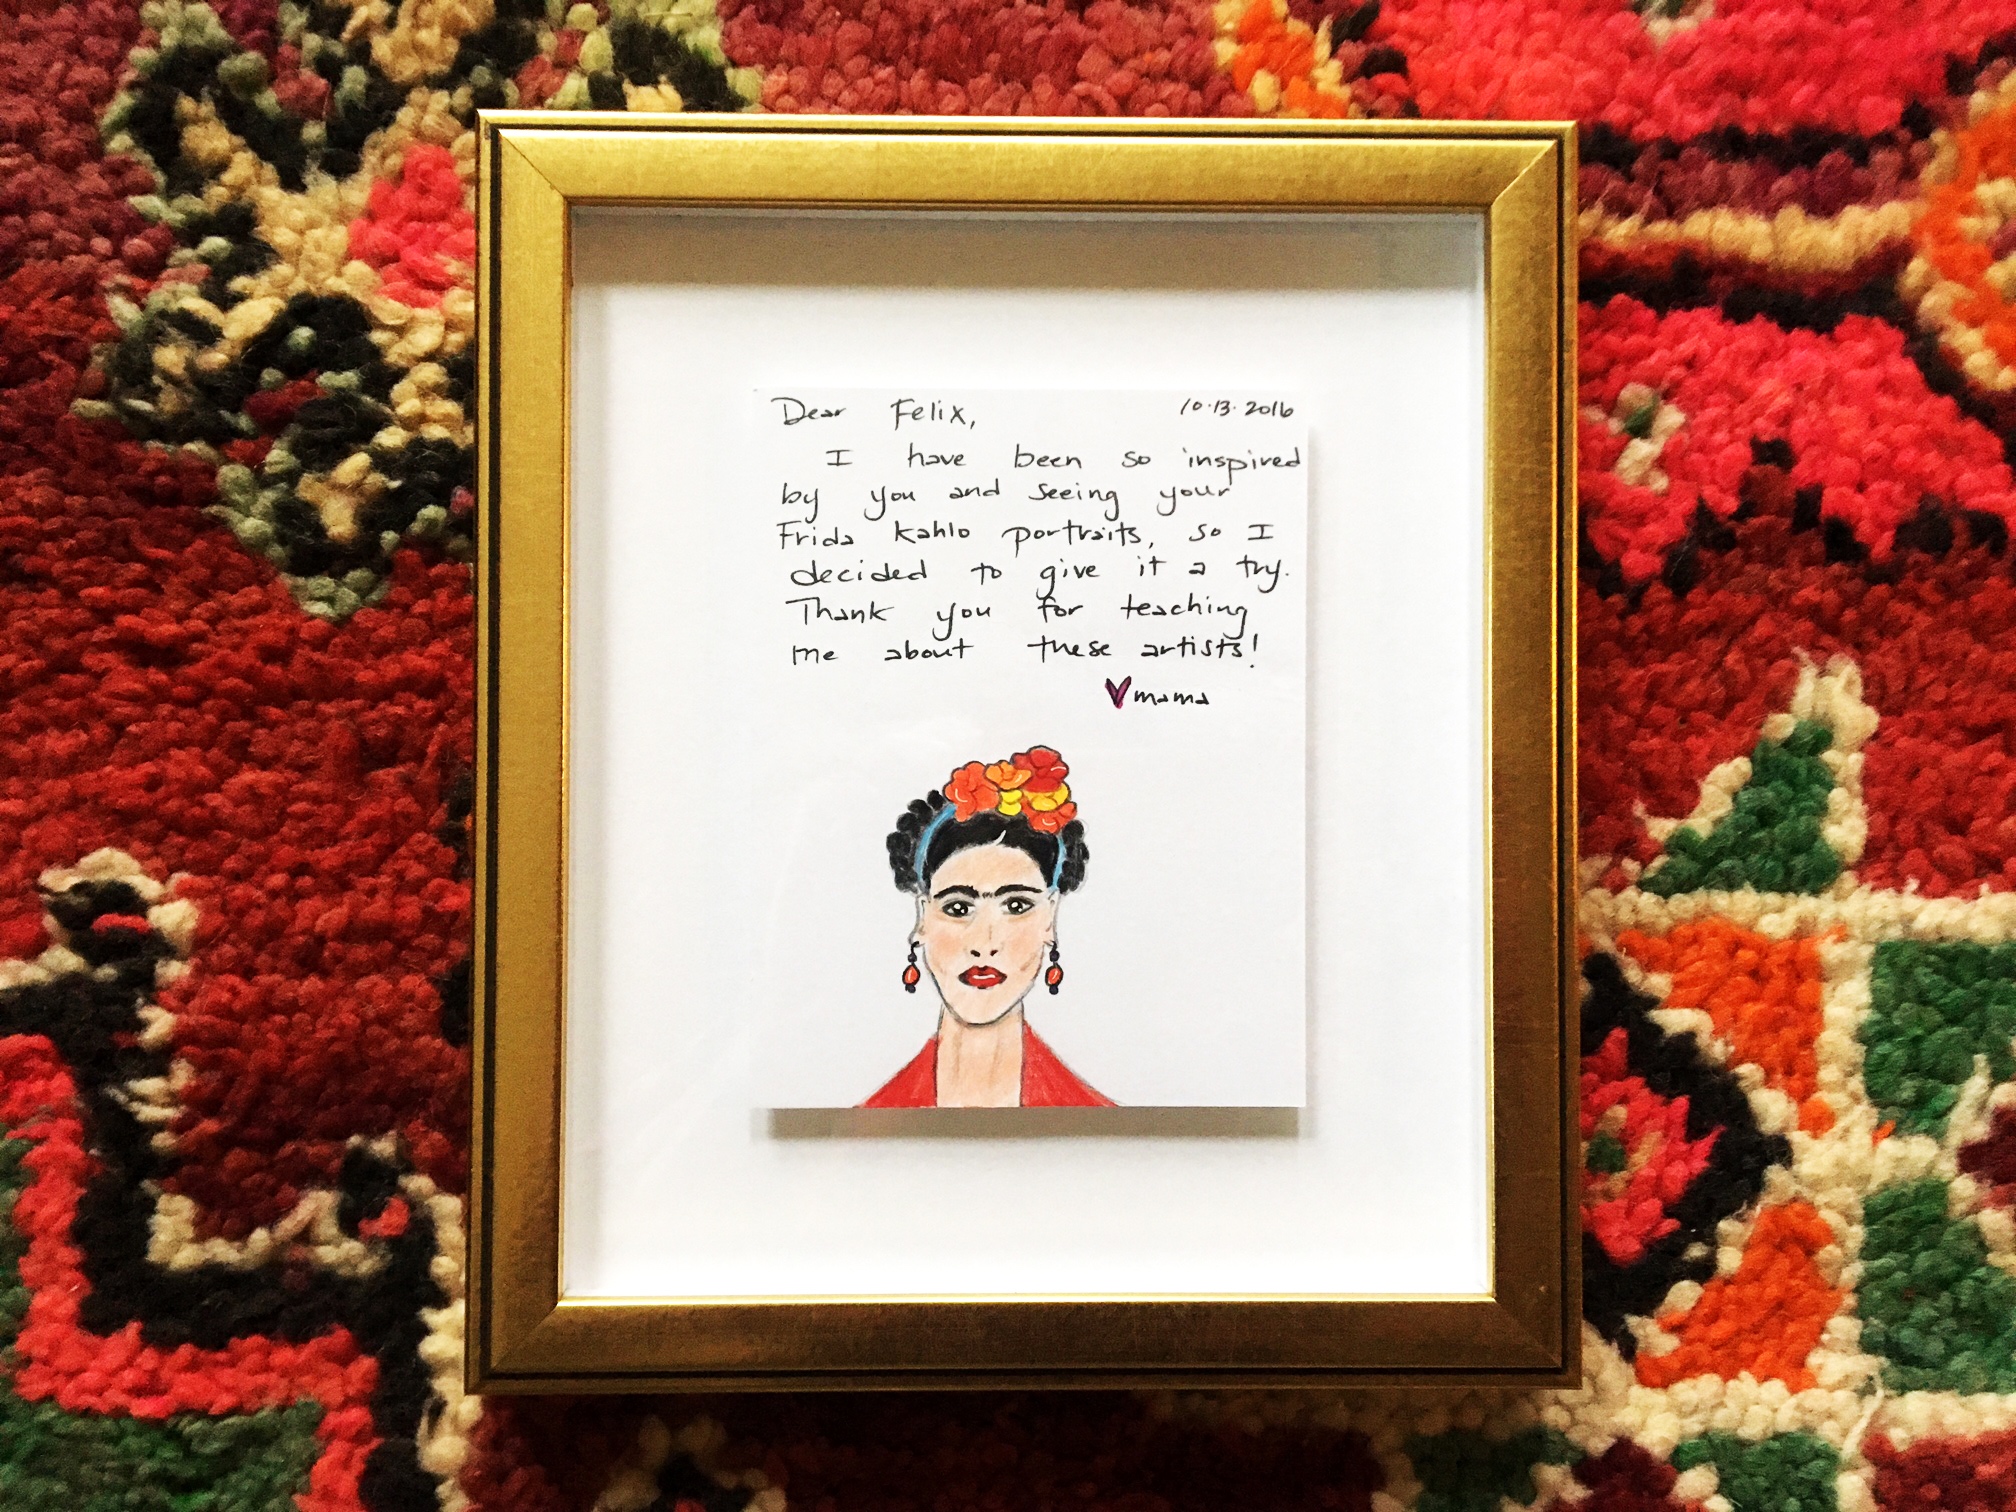 Dear Felix, 10.13.2016
I have been so inspired
by you and seeing your
Frida Kahlo portraits, so I
decided to give it a try.
Thank you for teaching
me about these artists!
♥mama